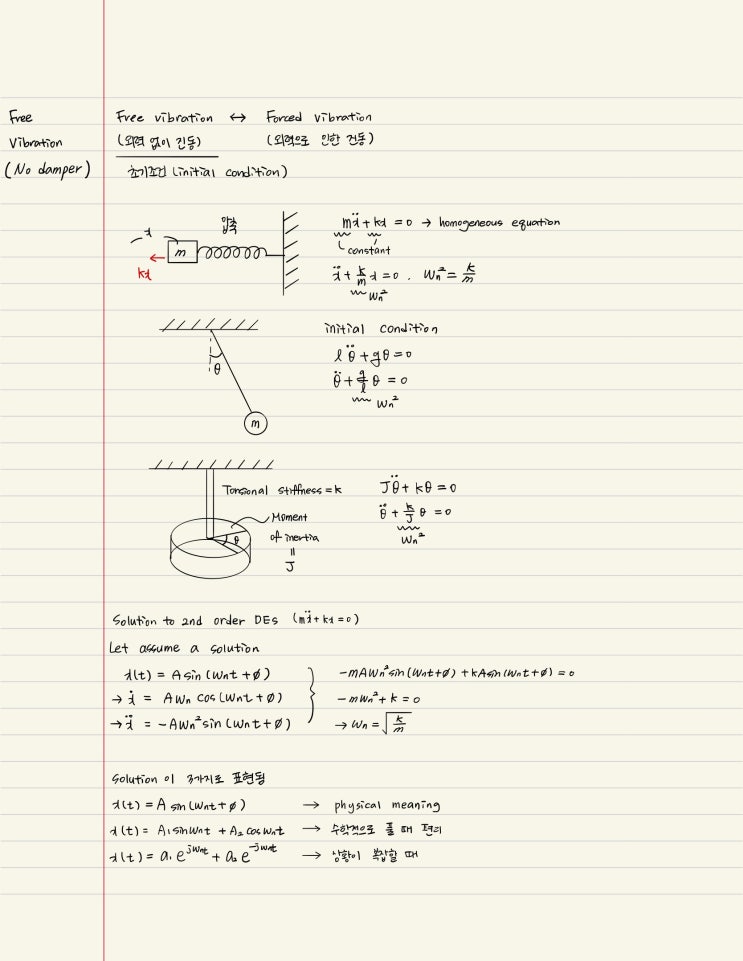 Free
Vibration
(No damper)
Free vibration ↔ Forced vibration
(외력 없이 진동) (외력으로 인한 진동)
초기조건 (initial condition)
x
압축
m
kx
mẍ + kx = 0 → homogeneous equation
constant
ẍ + k/m x = 0 . ωn² = k/m
ωn²
θ
m
initial condition
lθ̈ + gθ = 0
θ̈ + g/l θ = 0
ωn²
Torsional stiffness = k
Moment
of inertia
=
J
θ
Jθ̈ + kθ = 0
θ̈ + k/J θ = 0
ωn²
Solution to 2nd order DEs (mẍ + kx = 0)
Let assume a solution
x(t) = A sin (ωnt + ø)
→ ẋ = Aωn cos (ωnt + ø)
→ ẍ = -Aωn² sin (ωnt + ø)
-mAωn² sin (ωnt + ø) + kA sin (ωnt + ø) = 0
-mωn² + k = 0
→ ωn = √(k/m)
Solution 이 3가지로 표현됨
x(t) = A sin (ωnt + ø) → physical meaning
x(t) = A₁ sin ωnt + A₂ cos ωnt → 수학적으로 풀 때 편리
x(t) = a₁ e^jωnt + a₂ e^-jωnt → 상황이 복잡할 때